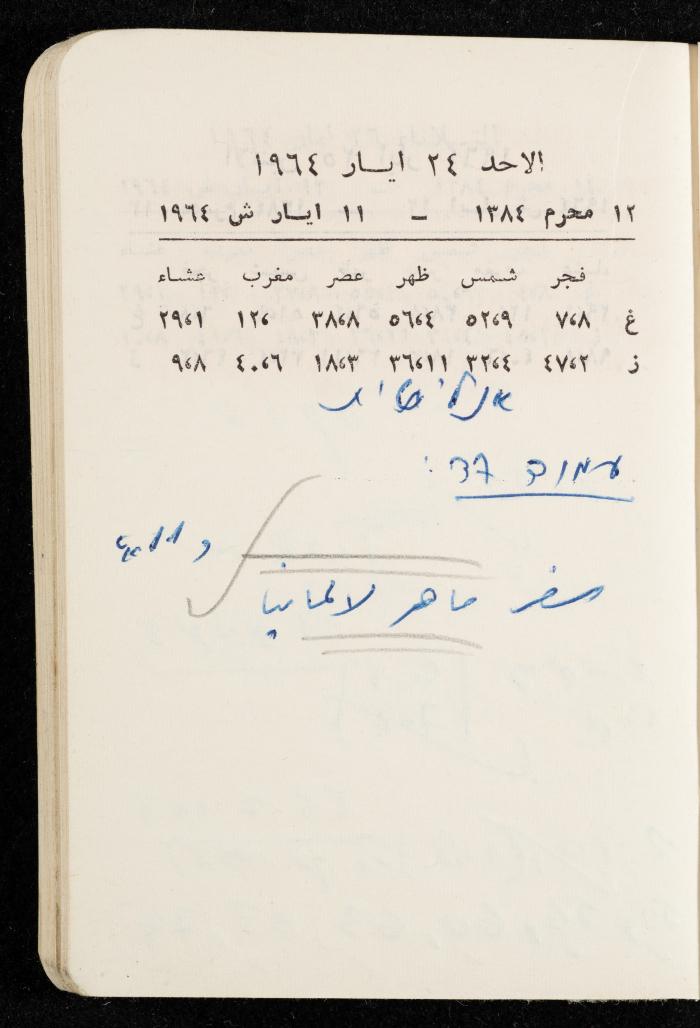 الاحد ٢٤ ايـار ١٩٦٤
١٢ محرم ١٣٨٤ – ١١ ايـار ش ١٩٦٤
فجر شـمس ظهر عصر مغرب عشاء
غ ٧،٨ ٥٢،٩ ٥٦،٤ ٣٨،٨ ١٢، ٢٩،١
ز ٤٧،٢ ٣٢،٤ ٣٦،١١ ١٨،٣ ٤٠،٦ ٩،٨
אנליטית
עמוד 37:
سفر ماهر لالمانيا